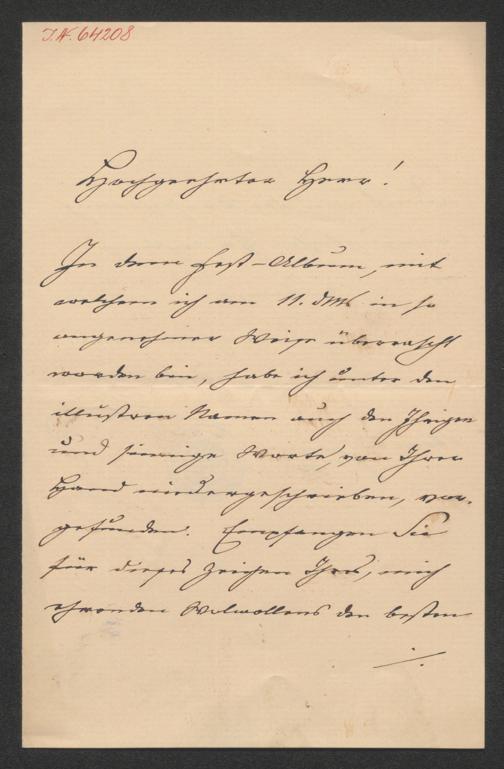 I.N. 64208
Hochgeehrter Herr!
In dem Fest-Album, mit
welchem ich am 11. dMs in so
angenehmer Weise überrascht
worden bin, habe ich unter den
illustren Namen auch den Ihrigen
und sinnige Worte, von Ihrer
Hand niedergeschrieben, vor-
gefunden. Empfangen Sie
für dieses Zeichen Ihres, mich
ehrenden Wolwollens den besten
./.